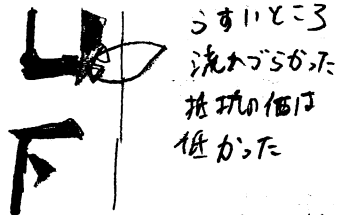 うすいところ
流れづらかった
抵抗の値は
低かった